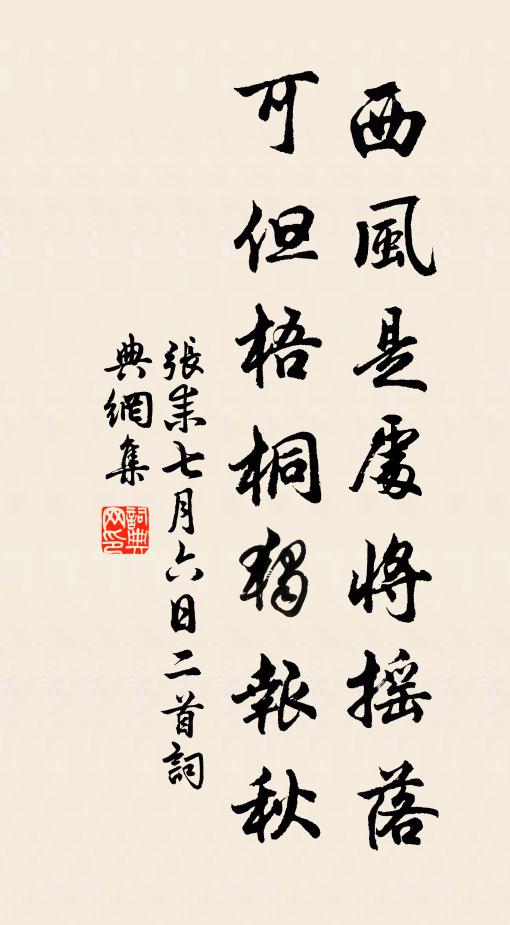 西風是處將搖落
可但梧桐獨報秋
張耒七月六日二首詞
典網集
詞典網印